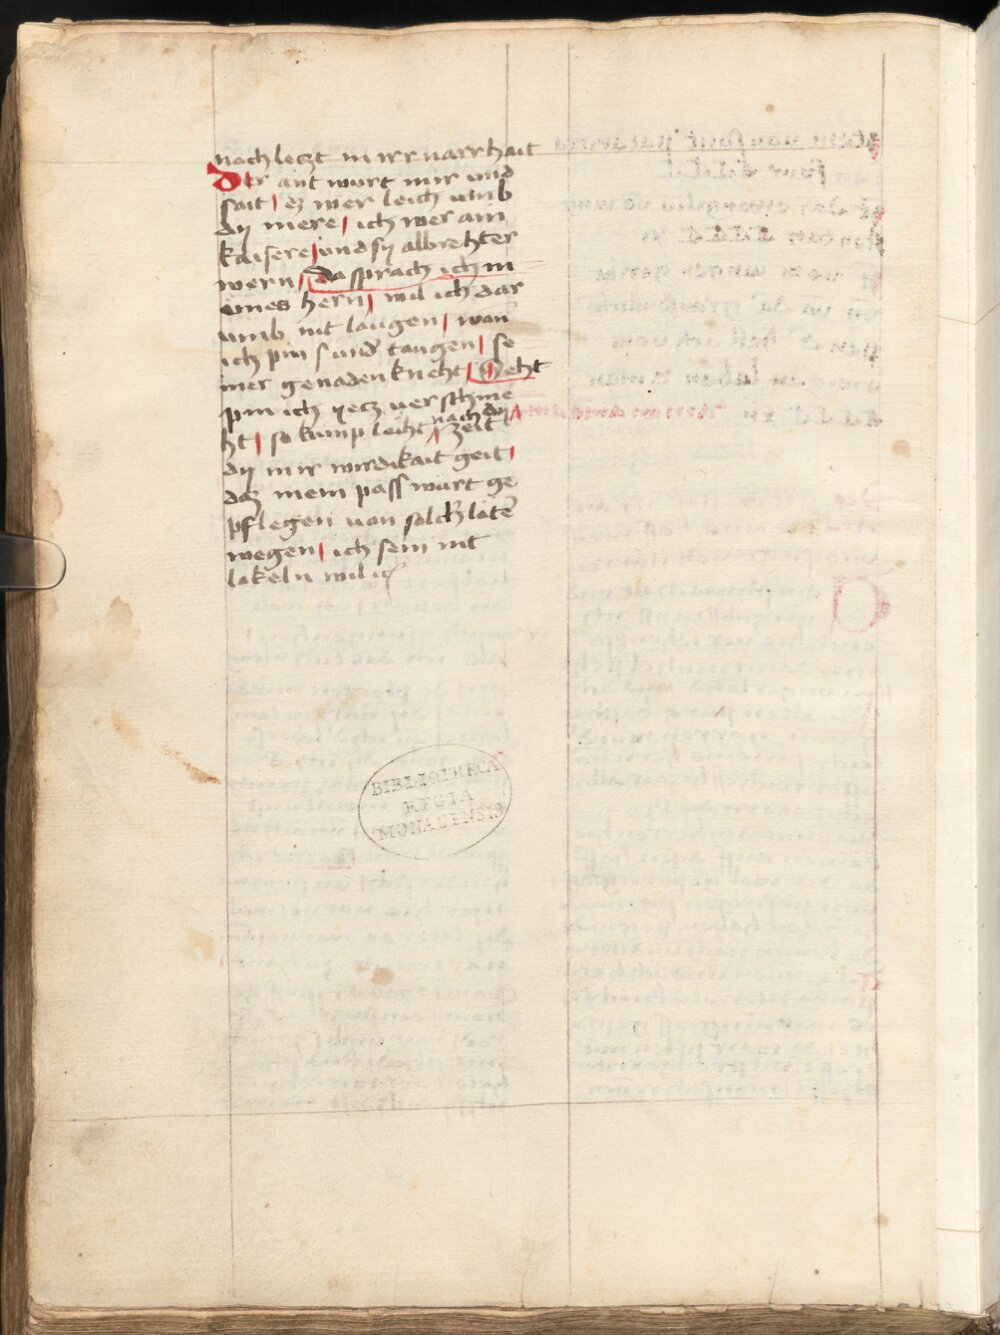 noch leczt in irr narrhait
Der ant wurt mir und
sait / ez wer leich umb
dÿ mere / ich wer ain
kaisere / und sÿ albrechter
wern / Da sprach ich in
eines hern / wil ich dar
umb nit laugen / wan
ich pin sund taugen / se
iner genaden knecht / Seht
spin ich yecz verschme
ht / so kump leicht nach dÿ
zeit
dÿ mir wirdikait geit /
daz mein pass wurt ge
pflegen von solch later
wegen / ich sein nit
lakeln wil ich
BIBLIOTHECA
REGIA
MONACENSIS